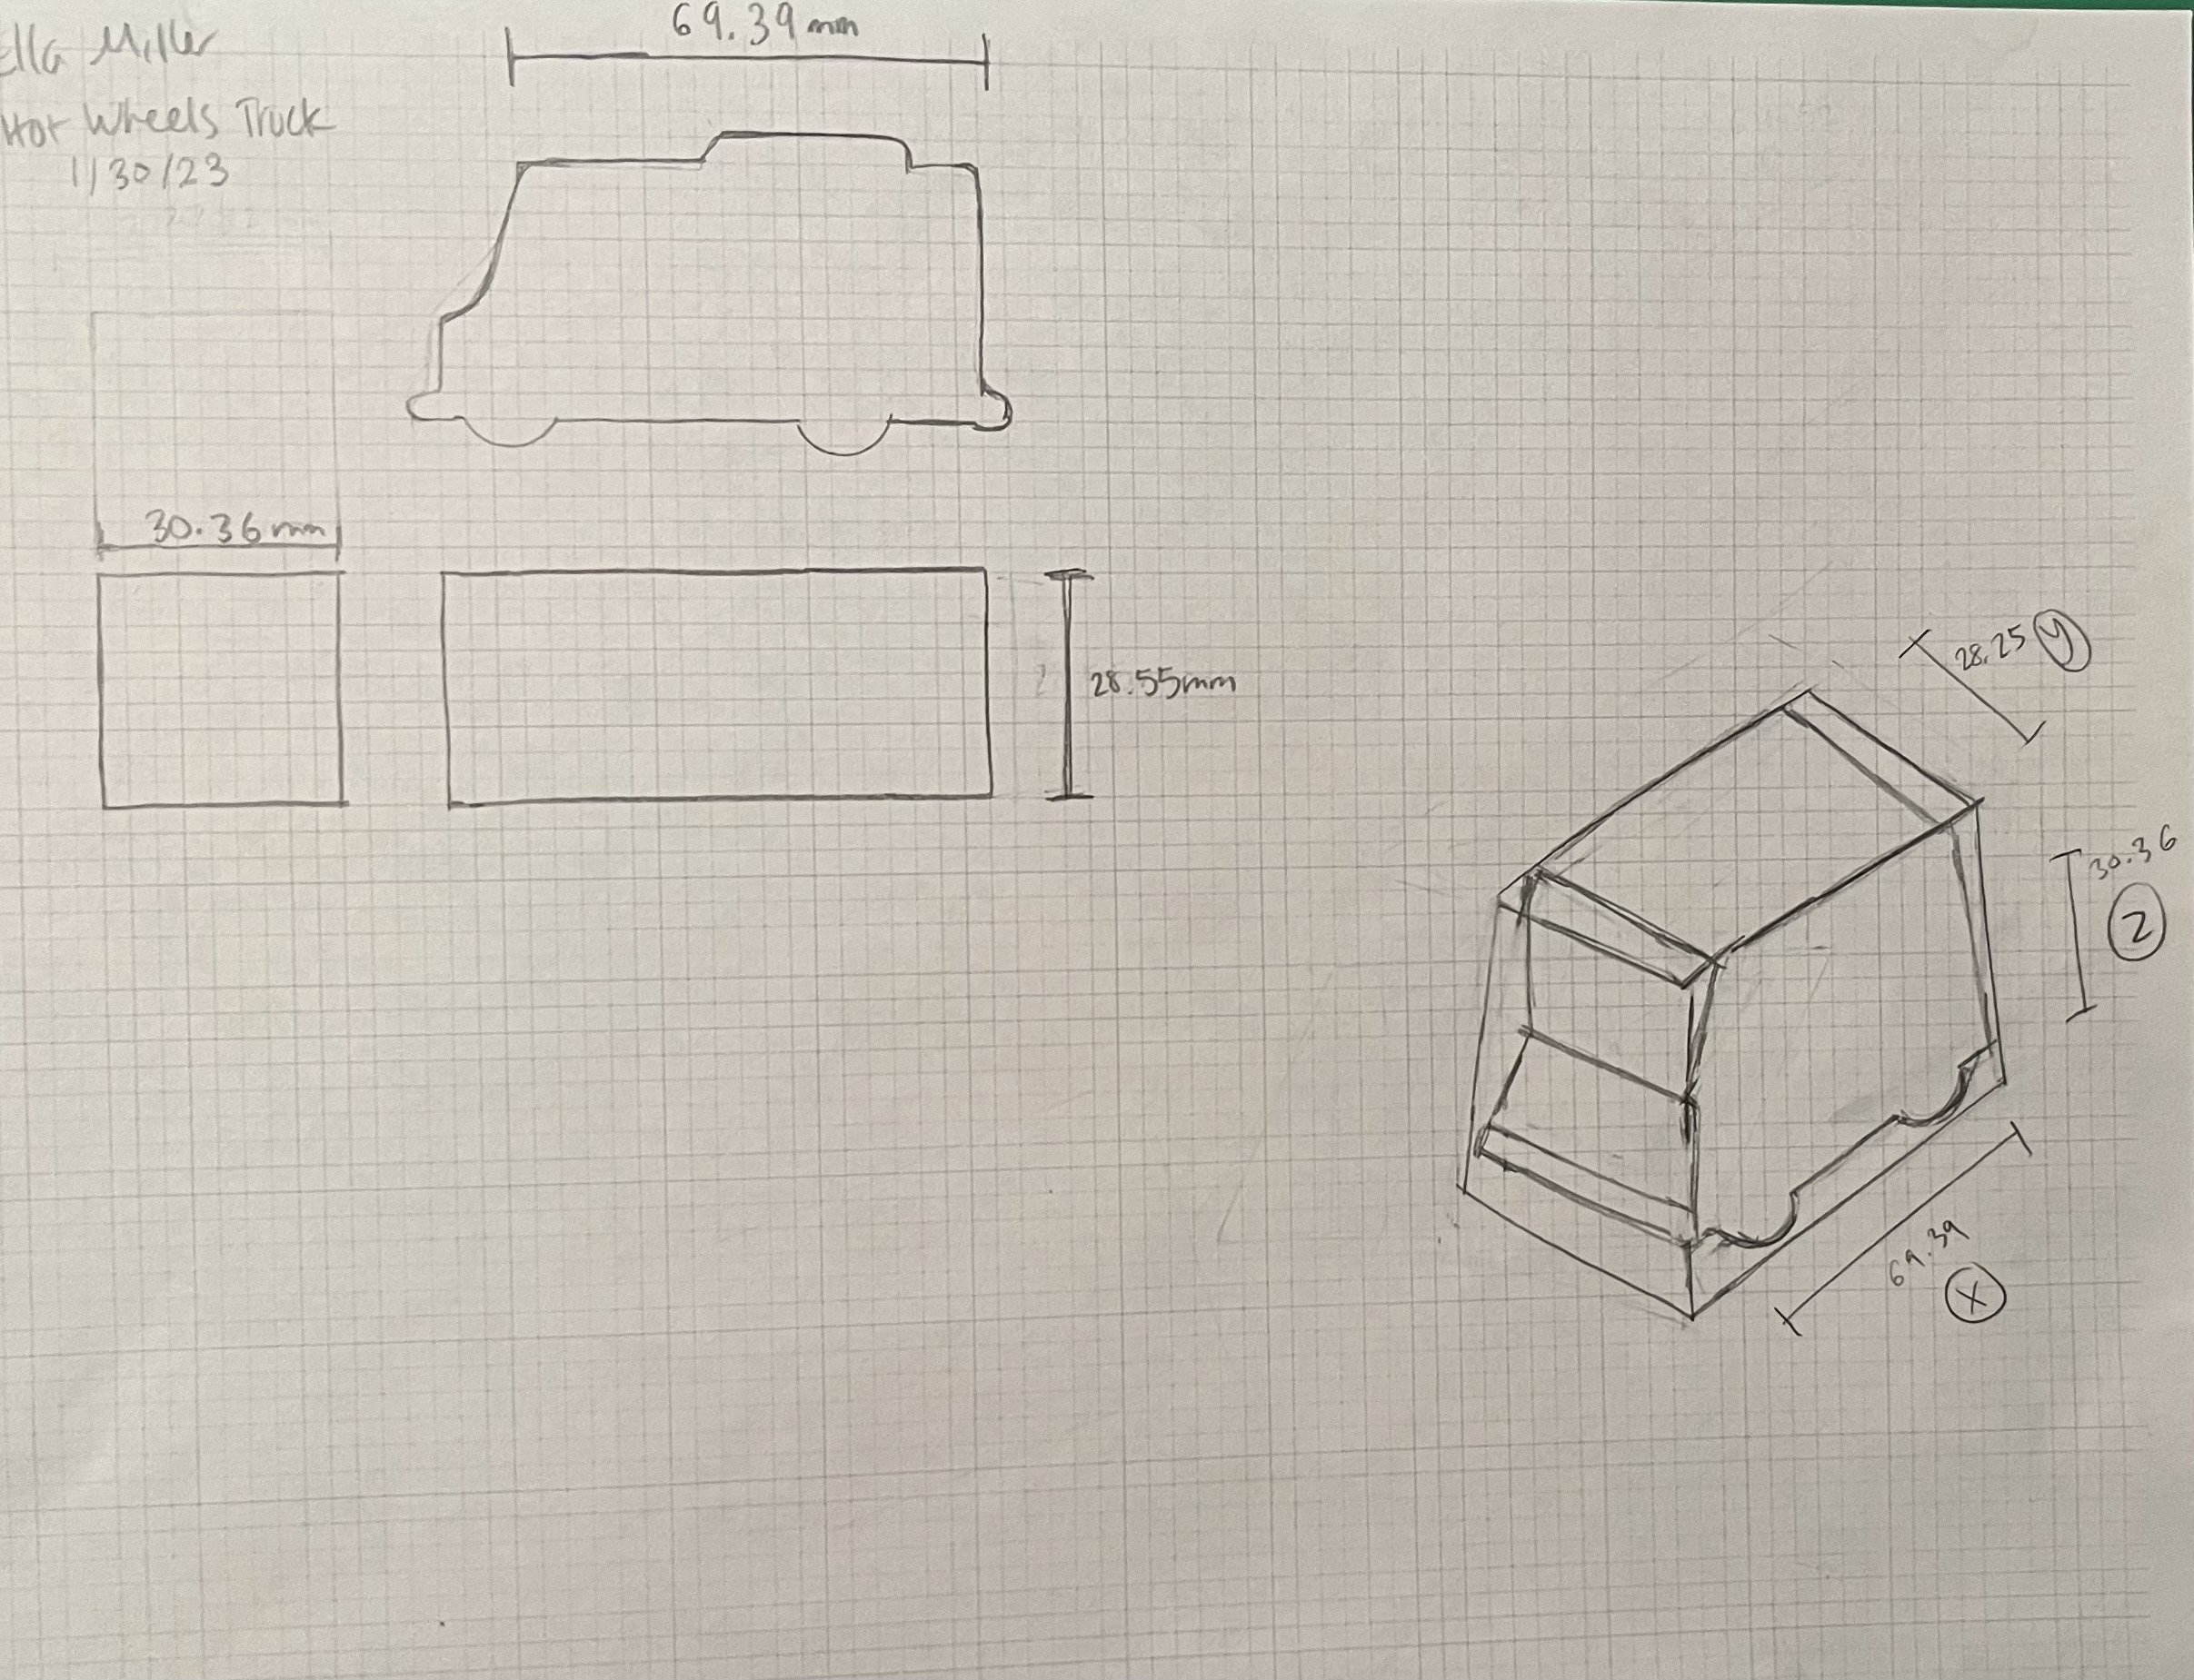 Ella Miller
Hot Wheels Truck
1/30/23
69.39mm
30.36mm
28.55mm
28.25 y
30.36
Z
69.39
X